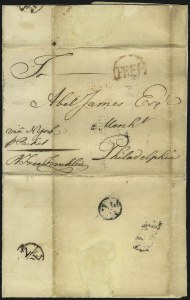 FREE
To
Abel James Esqr
Mercht
Philadelphia
via N York
pr Packet
B Free Franklin